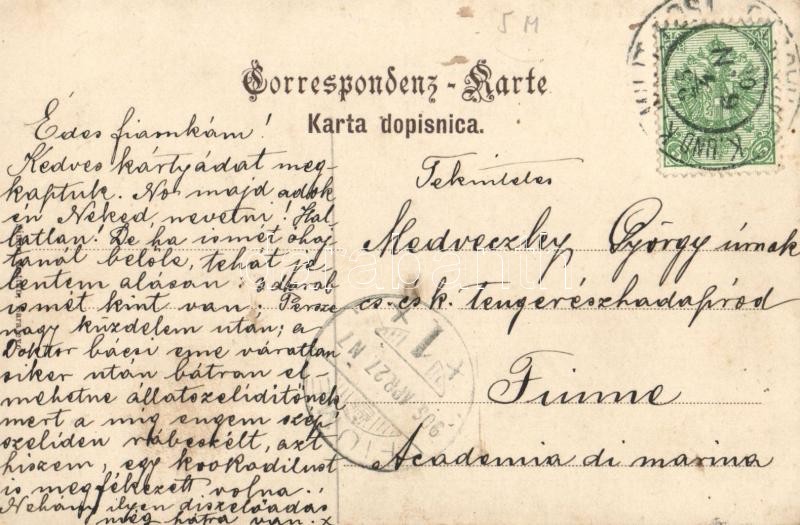 5 M
Correspondenz-Karte
Karta dopisnica.
K. UND K.
Édes fiamkám!
Kedves kártyádat meg-
kaptuk. No majd adok
én Néked, nevetni! Hal-
latlan! De ha ismét óhaj
tanál belőle, tehát je-
lentem alásan: 3 darab
ismét kint van. Persze
nagy küzdelem után; a
Doktor bácsi eme váratlan
siker után bátran el-
mehetne állatszeliditőnek
mert a mig engem szép
szeliden rábeszélt, azt
hiszem, egy krokodilust
is megfékezett volna.
Néhány ilyen diszelőadás
még hátra van.
Tekintetes
Medveczky György úrnak
cs. és k. tengerészhadapród
Fiume
Academia di marina
905 APR 27 N 7